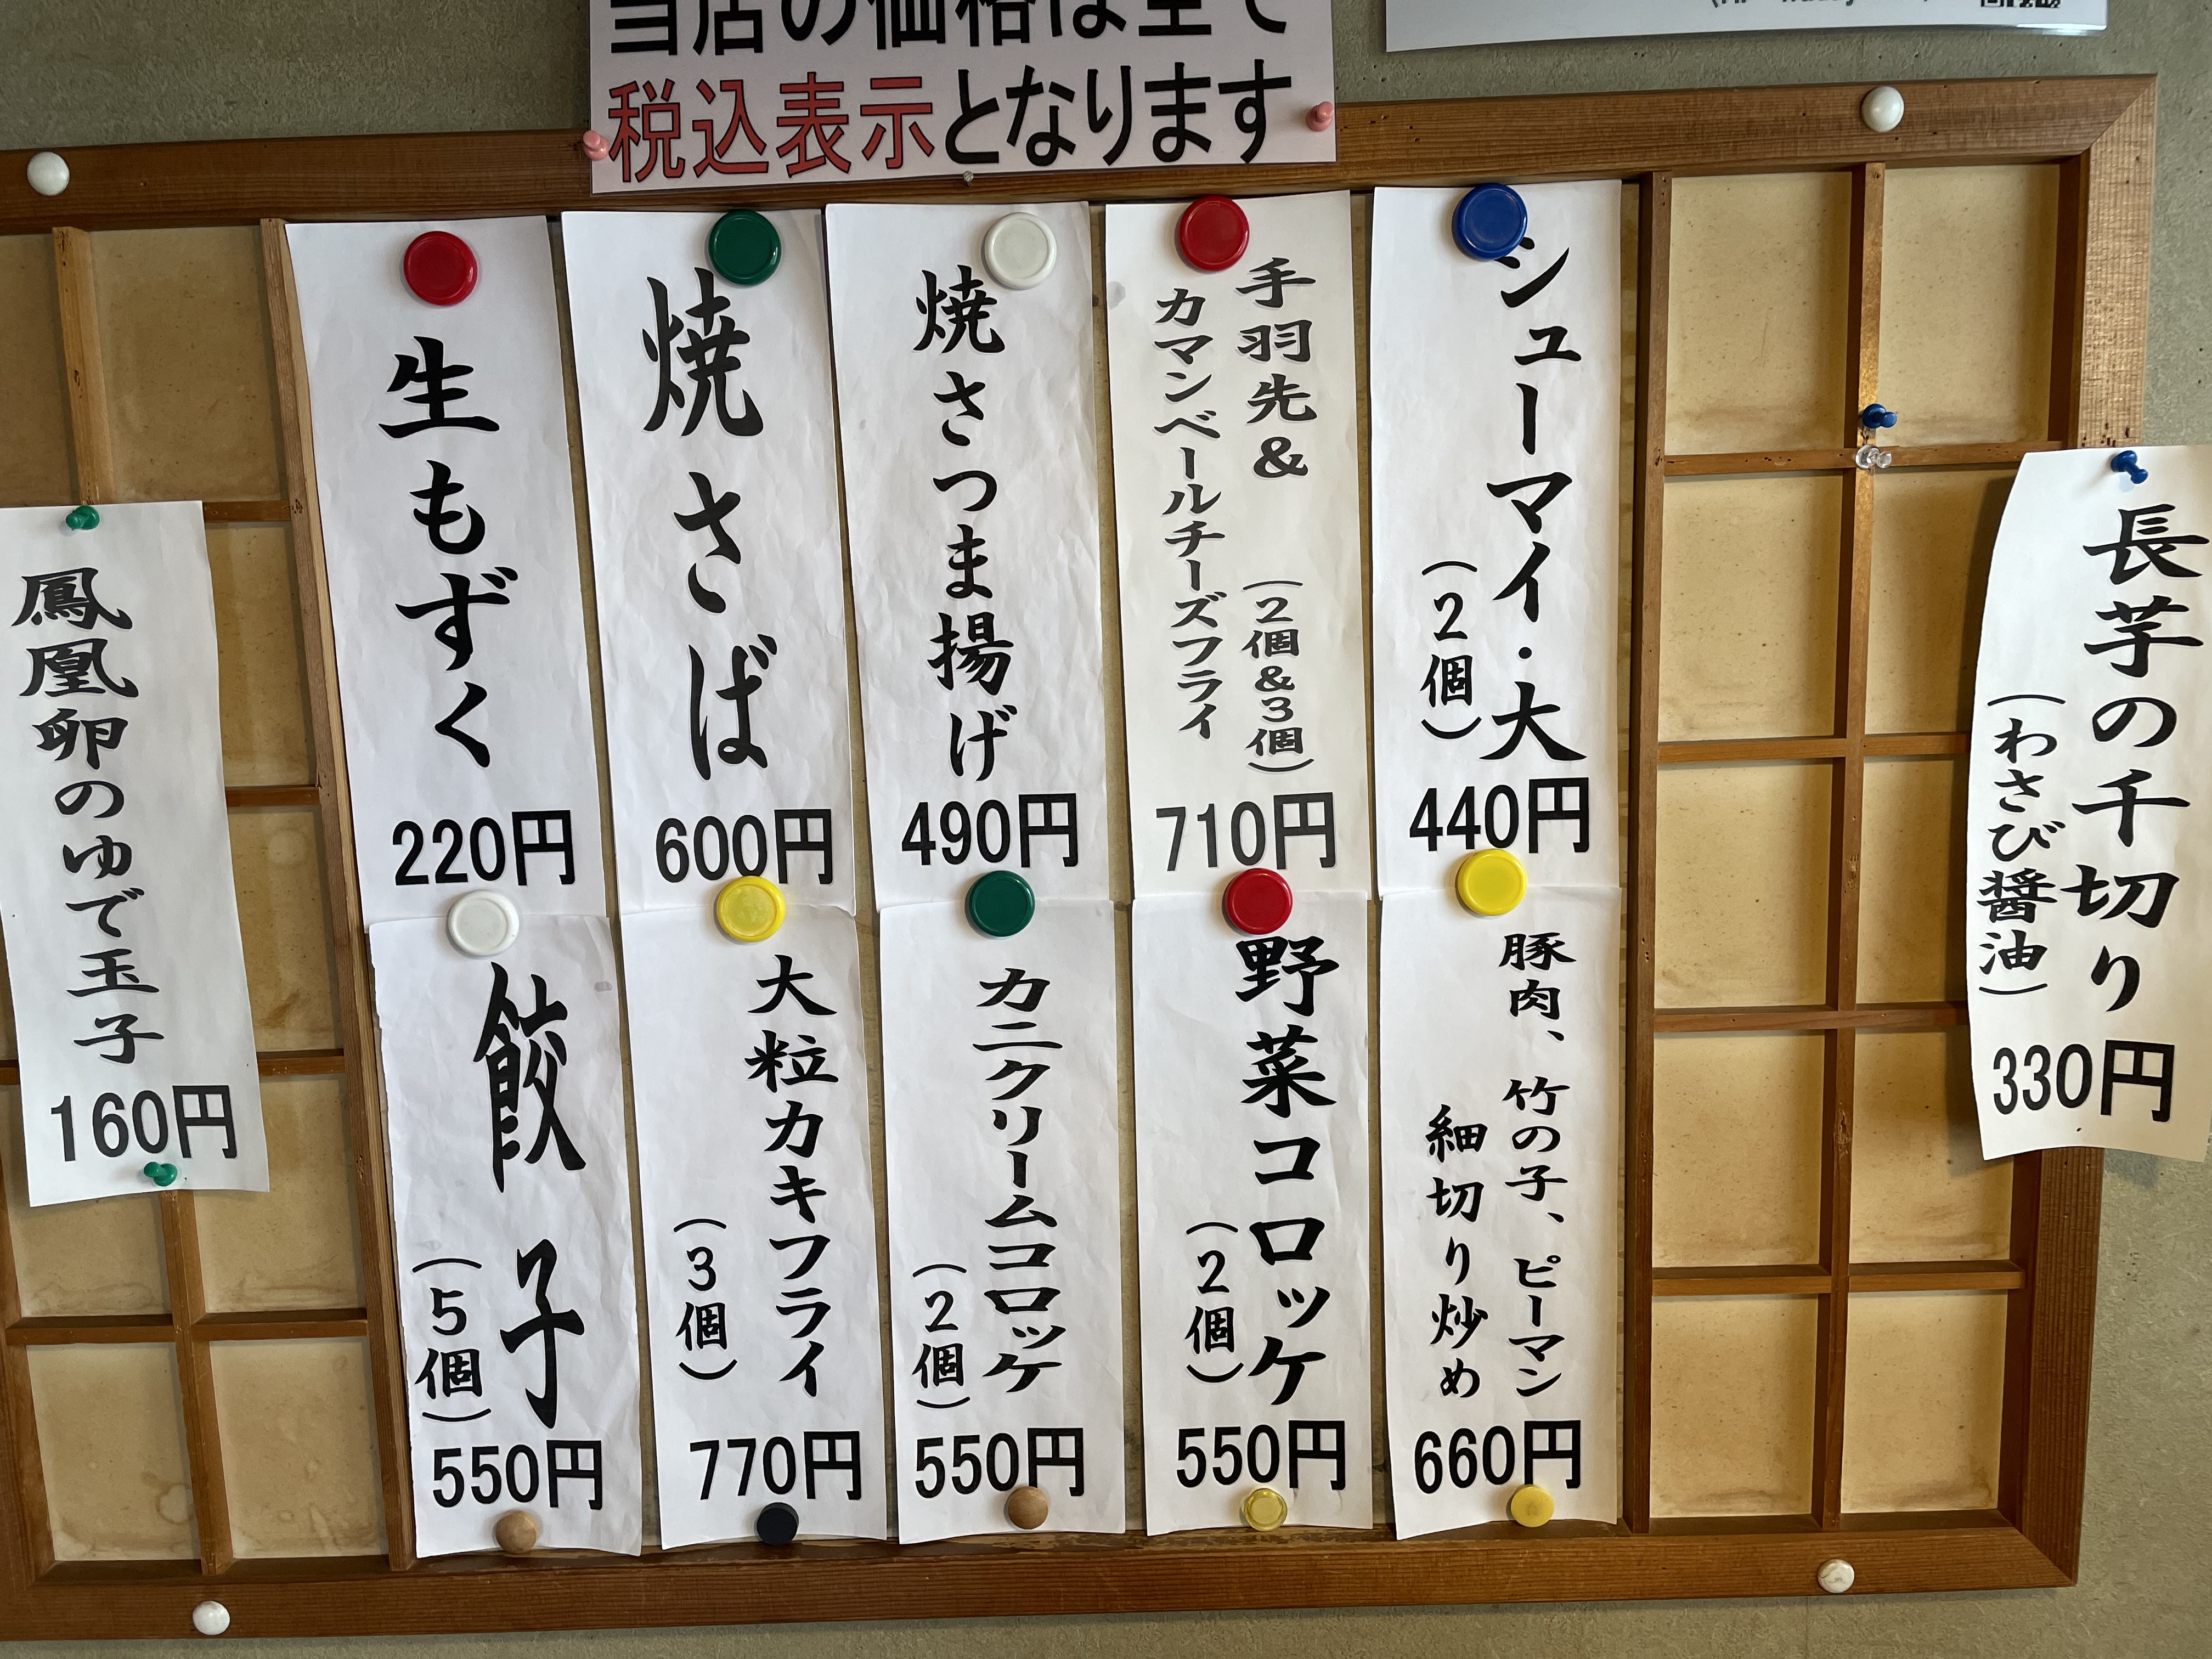 当店の価格は全て
税込表示となります
長芋の千切り
(わさび醤油)
330円
シューマイ・大
(2個)
440円
手羽先&
(2個&3個)
カマンベールチーズフライ
710円
焼さつま揚げ
490円
焼さば
600円
生もずく
220円
豚肉、竹の子、ピーマン
細切り炒め
660円
野菜コロッケ
(2個)
550円
カニクリームコロッケ
(2個)
550円
大粒カキフライ
(3個)
770円
餃子
(5個)
550円
鳳凰卵のゆで玉子
160円